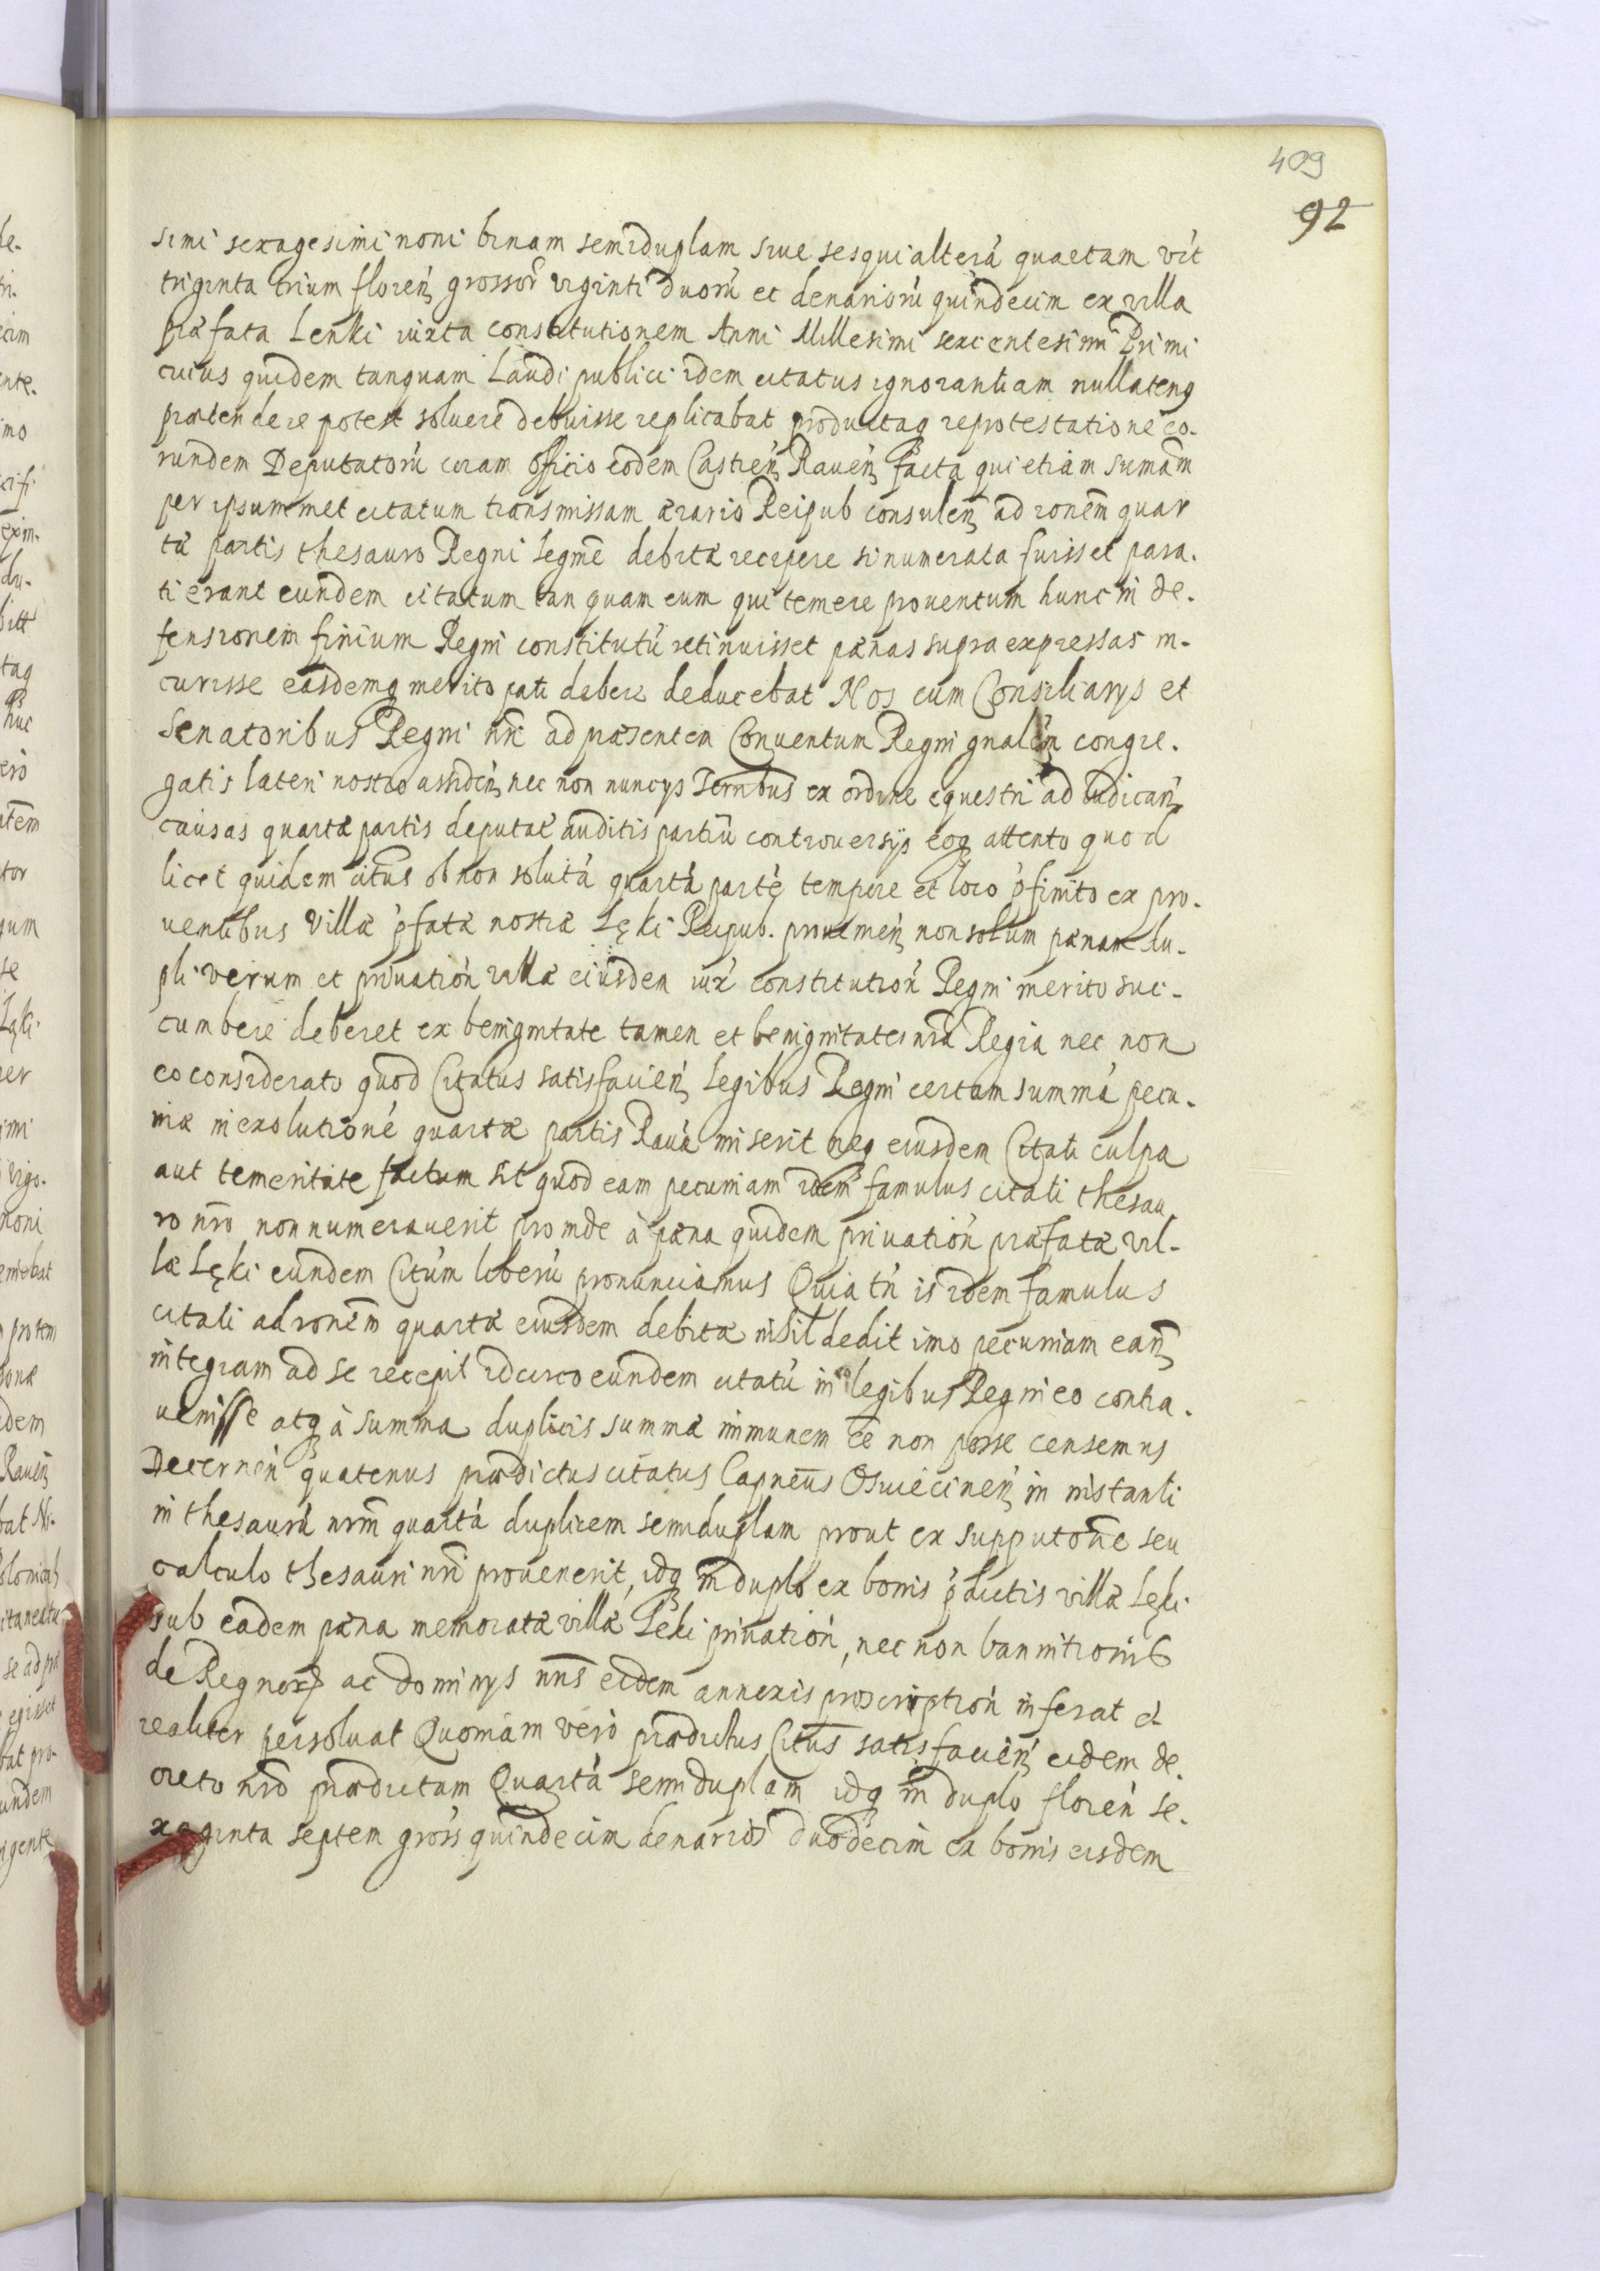 409
92
simi sexagesimi noni binam semiduplam siue sesquialterá quaetam vít
triginta trium floreń grossor̃ viginti duorú et denariorú quindecim ex villa
præfata Lenki iuxta constitutionem Anni Millesimi sexcentesimi Primi
cuius quidem tanquam Laudi publici idem citatus ignorantiam nullateng
prætendere potest soluere debuisse replicabat productaq reprotestationé eo-
rundem Deputatorú coram Officio eodem Castreń Raueń facta qui etiam sumam̃
per ipsummet citatum transmissam ærario Reipub consuleń ad ronem̃ quar
tæ partis thesauro Regni legmẽ debitæ recipere si numerata fuisset para-
ti erant eundem citatum tanquam eum qui temere prouentum hunc in de-
fensionem finium Regni constitutú retinuisset pænas supra expressas in-
curisse easdemq merito pati debere deducebat Nos cum Consiliarys et
Senatoribus Regni nr̃i ad præsentem Conuentum Regni gnaleń congre-
gatis lateri nostro assideń nec non nuncys Terribus ex ordine equestri ad iudicań
causas quartæ partis deputat̃ auditis partiú controuersijs eoq attento quod
licet quidem cit̃us ob non solutá quartá parté tempore et loco p̃finito ex pro-
uentibus villæ p̃fatæ nostræ Lęki Reipub. prouenień non solum pænam du-
pli verum et priuatioń villæ eiusdem iux́ constitutioń Regni merito suc-
cumbere deberet ex benignitate tamen et benignitate nr̃a Regia nec non
eo considerato quod Citatus satisfacień legibus Regni certam summá pecu-
niæ in exolutioné quartæ partis Rauá miserit neq eiusdem Citati culpa
aut temeritate factum sit quod eam pecuniam idem famulus citati thesau-
ro nr̃o non numerauerit proinde à pæna quidem priuatioń præfatæ vil-
læ Lęki eundem Citúm liberú pronunciamus Quia tń is idem famulus
citati ad ronem̃ quartæ eiusdem debitæ nihil dedit imo pecuniam eań
integram ad se recepit idcirco eundem citatú in eo legibus Regni eo contra-
uenisse atq à summa duplicis summæ immunem ẽe non posse censemus
Decerneń quatenus prædictus citatus Capneus Osuiecineń in instanti
in thesaurú nrm̃ quartá duplicem semiduplam prout ex supputone seu
calculo thesauri nr̃i prouenerit, idq in duplo ex bonis p̃dictis villæ Lęki
sub eadem pæna memoratæ villæ Lęki priuatioń, nec non bannitionib
de Regno et ac dominys nr̃is eidem annexis proscriptioń inferat et
realiter persoluat Quoniam vero prædictus Cit̃us satisfacień eidem de-
creto nr̃o prædictam Quartá semiduplam idq in duplo floreń se-
xaginta septem gross quindecim denarios duodecim ex bonis eisdem